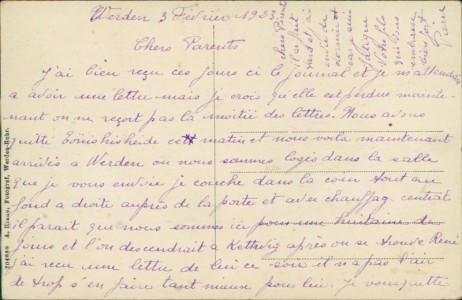 Werden 3 Février 1923.
Chers Parents
J'ai bien reçu ces jours ci le journal et je m'attendais
a avoir une lettre mais je crois qu'elle est perdue mainte-
nant on ne reçoit pas la moitié des lettres. Nous avons
quitté Tönishisheide cett matin et nous voila maintenant
arrivés a Werden ou nous sommes logés dans la salle
que je vous envoie je couche dans la coin tout au
fond a droite auprès de la porte et avec chauffage central
il parait que nous sommes ici pour une huitaine de
jours et l'on descendrait a Kettwig après ou se trouve René
j'ai reçu une lettre de lui ce soir il n'a pas l'air
de trop s'en faire tant mieux pour lui. Je vous quitte
chers Parents
il se fait
fatigué
Votre fils
qui vous
embrasse
bien fort
Pierre
A. Haas, Fotograf, Werden-Ruhr.